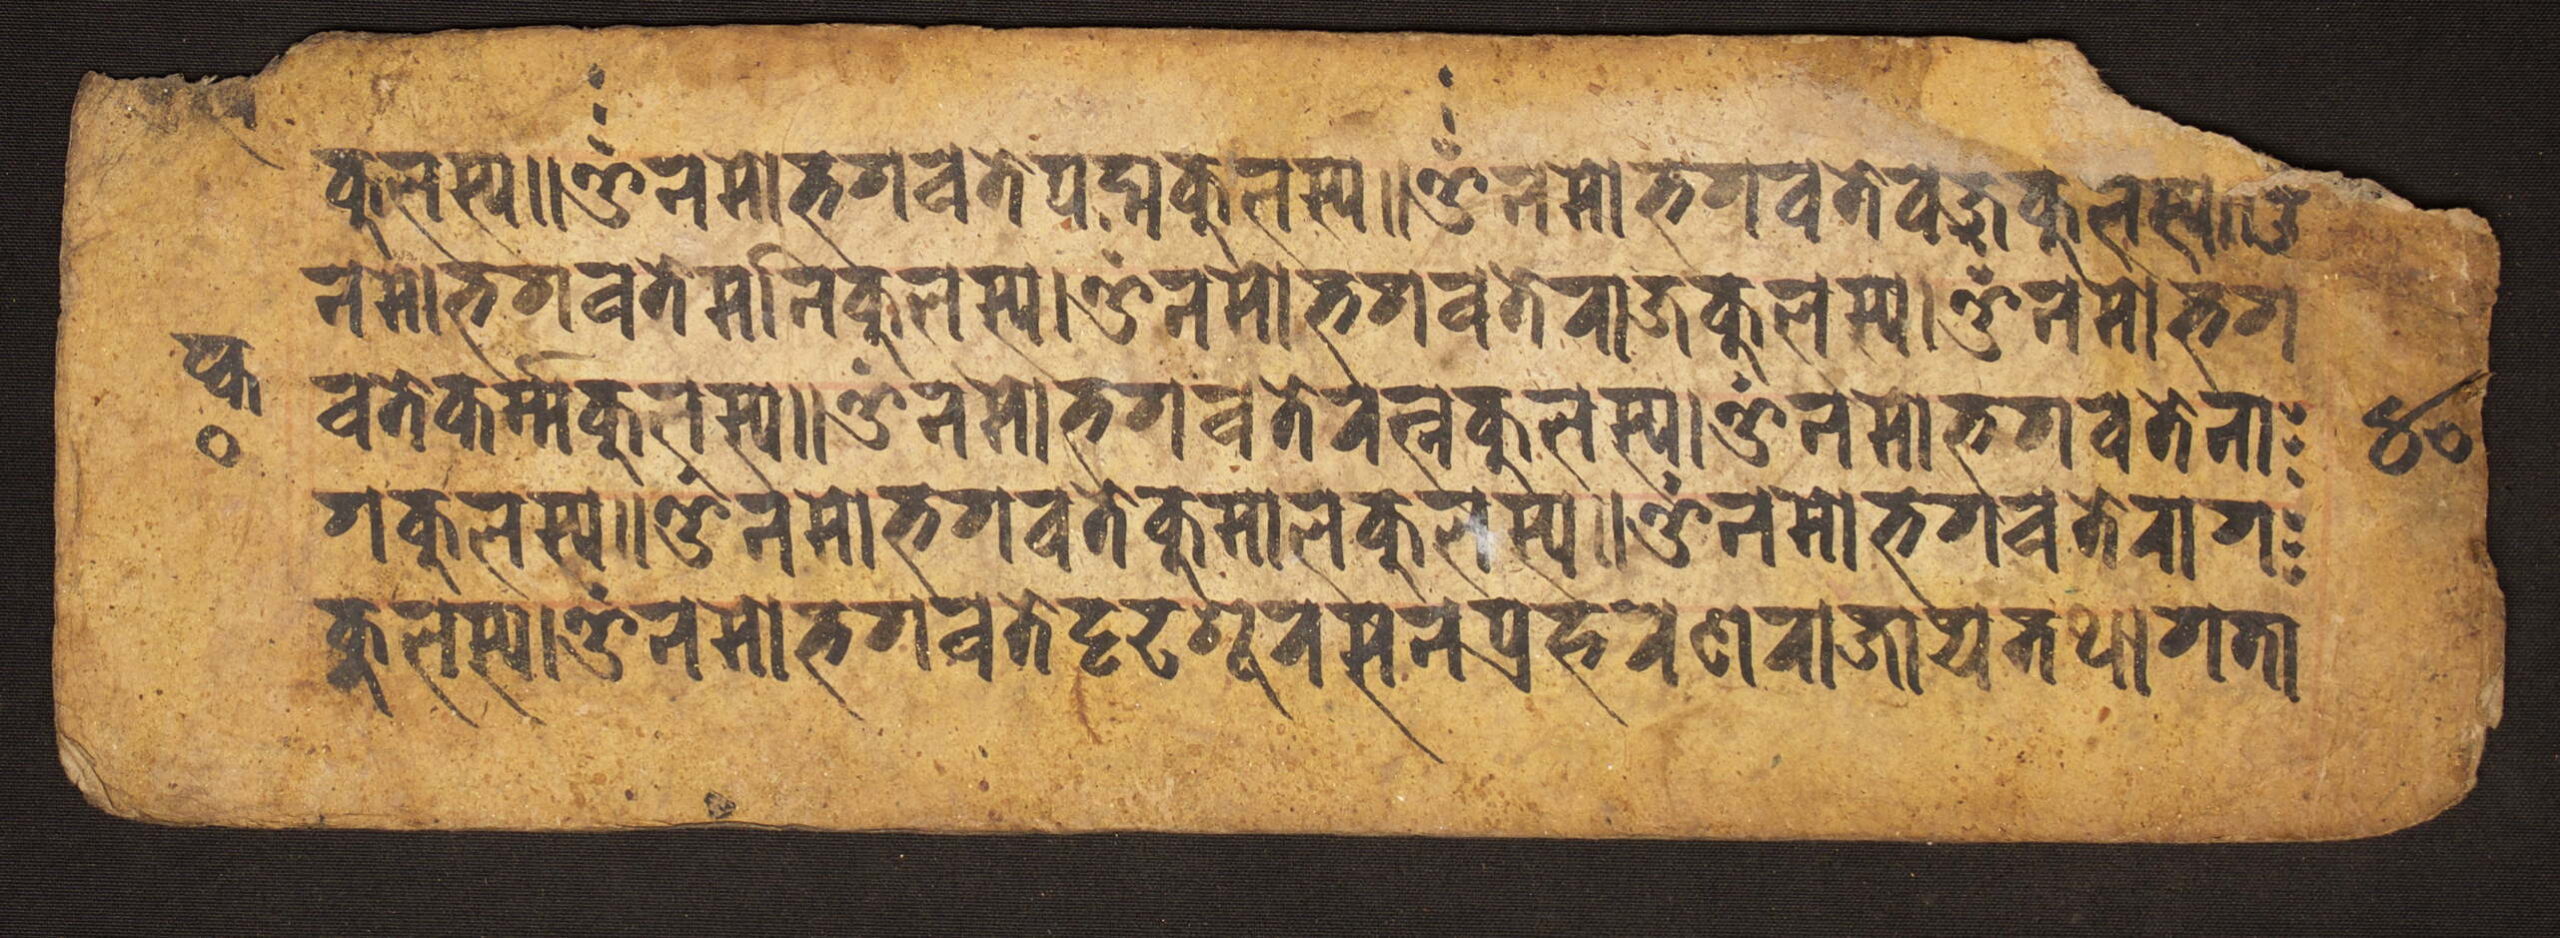 कुलस्य॥ॐनमोभगवतेपद्मकुलस्य॥ॐनमोभगवतेवज्रकुलस्य॥ॐ
नमोभगवतेमनिकुलस्य।ॐनमोभगवतेराजकुलस्य।ॐनमोभग
वतेकर्म्मकुलस्य॥ॐनमोभगवतेरत्नकुलस्य।ॐनमोभगवतेना
गकुलस्य॥ॐनमोभगवतेकुमालकुलस्य॥ॐनमोभगवतेराग
कुलस्य।ॐनमोभगवतेदृढशूरसेनप्रहरणराजायतथागता
४०